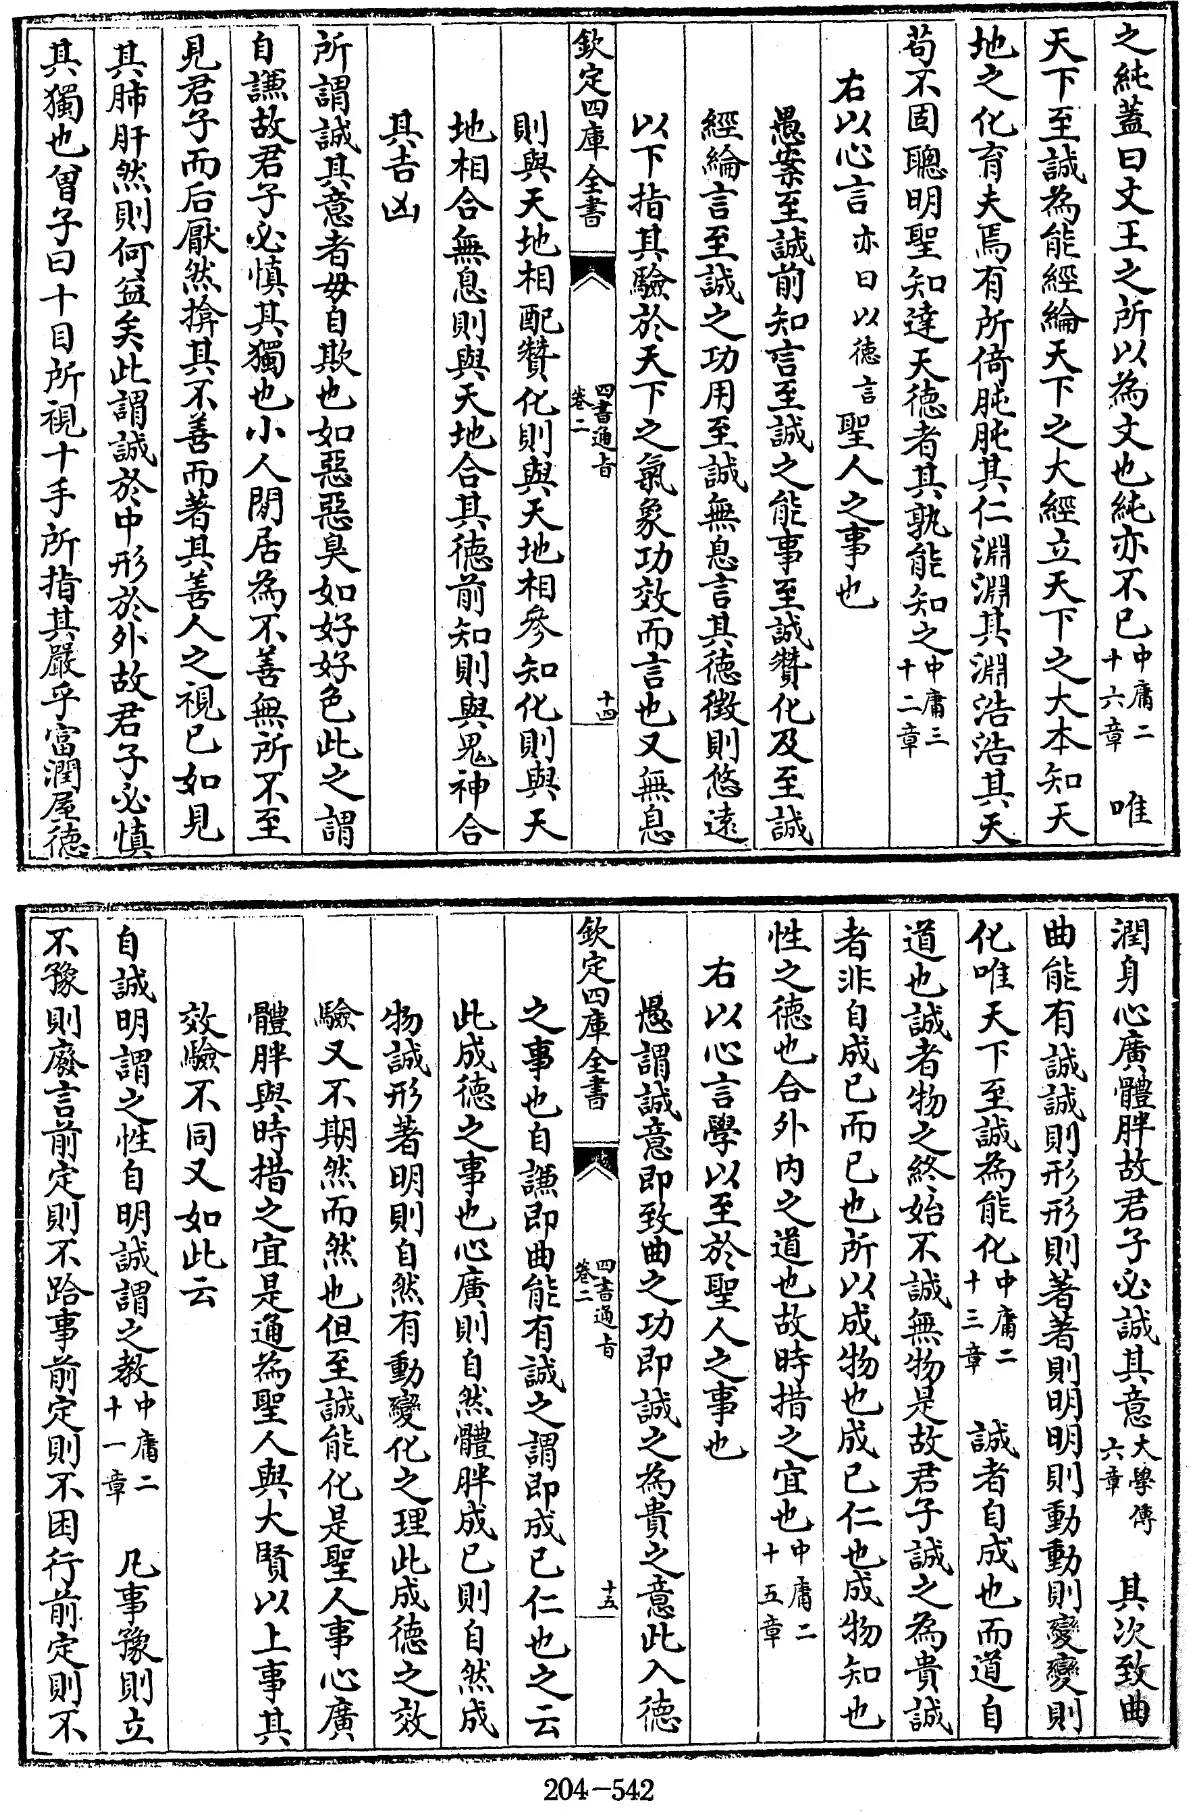 之純蓋曰文王之所以為文也純亦不已中庸二十六章　唯
天下至誠為能經綸天下之大經立天下之大本知天
地之化育夫焉有所倚肫肫其仁淵淵其淵浩浩其天
苟不固聰明聖知達天德者其孰能知之中庸三十二章
右以心言亦曰以德言聖人之事也
愚案至誠前知言至誠之能事至誠贊化及至誠
經綸言至誠之功用至誠無息言其德徵則悠遠
以下指其驗於天下之氣象功效而言也又無息
欽定四庫全書　四書通旨卷二　十四
則與天地相配贊化則與天地相參知化則與天
地相合無息則與天地合其德前知則與鬼神合
其吉凶
所謂誠其意者毋自欺也如惡惡臭如好好色此之謂
自謙故君子必慎其獨也小人閒居為不善無所不至
見君子而后厭然揜其不善而著其善人之視己如見
其肺肝然則何益矣此謂誠於中形於外故君子必慎
其獨也曾子曰十目所視十手所指其嚴乎富潤屋德
潤身心廣體胖故君子必誠其意大學傳六章　其次致曲
曲能有誠誠則形形則著著則明明則動動則變變則
化唯天下至誠為能化中庸二十三章　誠者自成也而道自
道也誠者物之終始不誠無物是故君子誠之為貴誠
者非自成己而已也所以成物也成己仁也成物知也
性之德也合外內之道也故時措之宜也中庸二十五章
右以心言學以至於聖人之事也
愚謂誠意即致曲之功即誠之為貴之意此入德
欽定四庫全書　四書通旨卷二　十五
之事也自謙即曲能有誠之謂即成己仁也之云
此成德之事也心廣則自然體胖成己則自然成
物誠形著明則自然有動變化之理此成德之效
驗又不期然而然也但至誠能化是聖人事心廣
體胖與時措之宜是通為聖人與大賢以上事其
效驗不同又如此云
自誠明謂之性自明誠謂之教中庸二十一章　凡事豫則立
不豫則廢言前定則不跲事前定則不困行前定則不
204-542